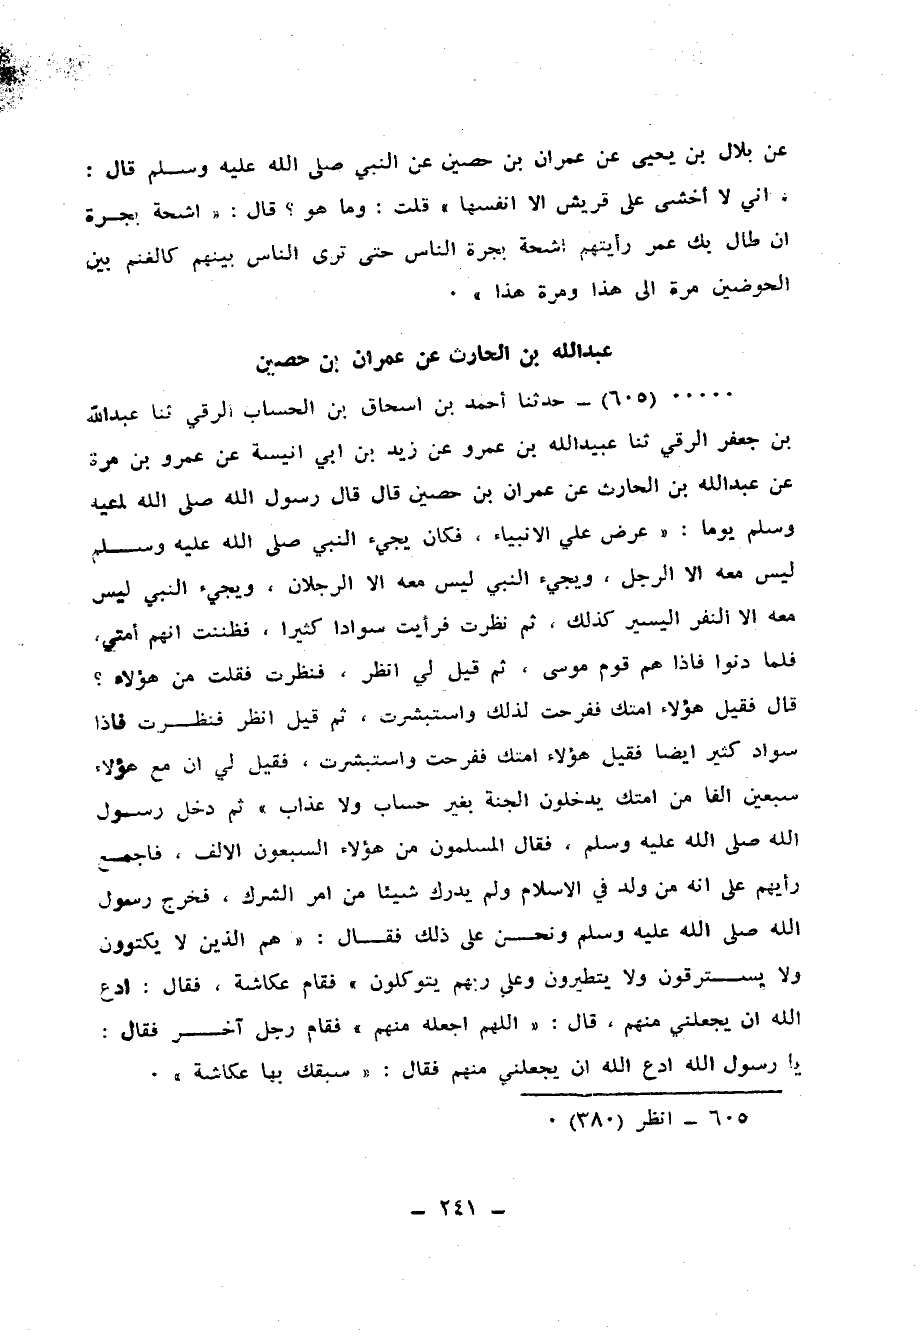 عن بلال بن يحيى عن عمران بن حصين عن النبي صلى الله عليه وسلم قال :
« اني لا أخشى على قريش الا انفسها » قلت : وما هو ؟ قال : « اشحة بجرة
ان طال بك عمر رأيتهم اشحة بجرة الناس حتى ترى الناس بينهم كالغنم بين
الحوضين مرة الى هذا ومرة هذا » ٠
عبدالله بن الحارث عن عمران بن حصين
٠٠٠٠٠ (٦٠٥) ــ حدثنا أحمد بن اسحاق بن الحساب الرقي ثنا عبدالله
بن جعفر الرقي ثنا عبيدالله بن عمرو عن زيد بن ابي انيسة عن عمرو بن مرة
عن عبدالله بن الحارث عن عمران بن حصين قال قال رسول الله صلى الله
وسلم يوما : « عرض علي الانبياء ، فكان يجيء النبي صلى الله عليه وسلم
ليس معه الا الرجل ، ويجيء النبي ليس معه الا الرجلان ، ويجيء النبي ليس
معه الا النفر اليسير كذلك ، ثم نظرت فرأيت سوادا كثيرا ، فظننت انهم أمتي،
فلما دنوا فاذا هم قوم موسى ، ثم قيل لي انظر ، فنظرت فقلت من هؤلاء ؟
قال فقيل هؤلاء امتك ففرحت لذلك واستبشرت ، ثم قيل انظر فنظرت فاذا
سواد كثير ايضا فقيل هؤلاء امتك ففرحت واستبشرت ، فقيل لي ان مع هؤلاء
سبعين الفا من امتك يدخلون الجنة بغير حساب ولا عذاب » ثم دخل رسول
الله صلى الله عليه وسلم ، فقال المسلمون من هؤلاء السبعون الالف ، فاجمع
رأيهم على انه من ولد في الاسلام ولم يدرك شيئا من امر الشرك ، فخرج رسول
الله صلى الله عليه وسلم ونحن على ذلك فقال : « هم الذين لا يكتوون
ولا يسترقون ولا يتطيرون وعلى ربهم يتوكلون » فقام عكاشة ، فقال : ادع
الله ان يجعلني منهم ، قال : « اللهم اجعله منهم » فقام رجل آخر فقال :
يا رسول الله ادع الله ان يجعلني منهم فقال : « سبقك بها عكاشة » ٠
٦٠٥ ــ انظر (٣٨٠) ٠
ــ ٢٤١ ــ